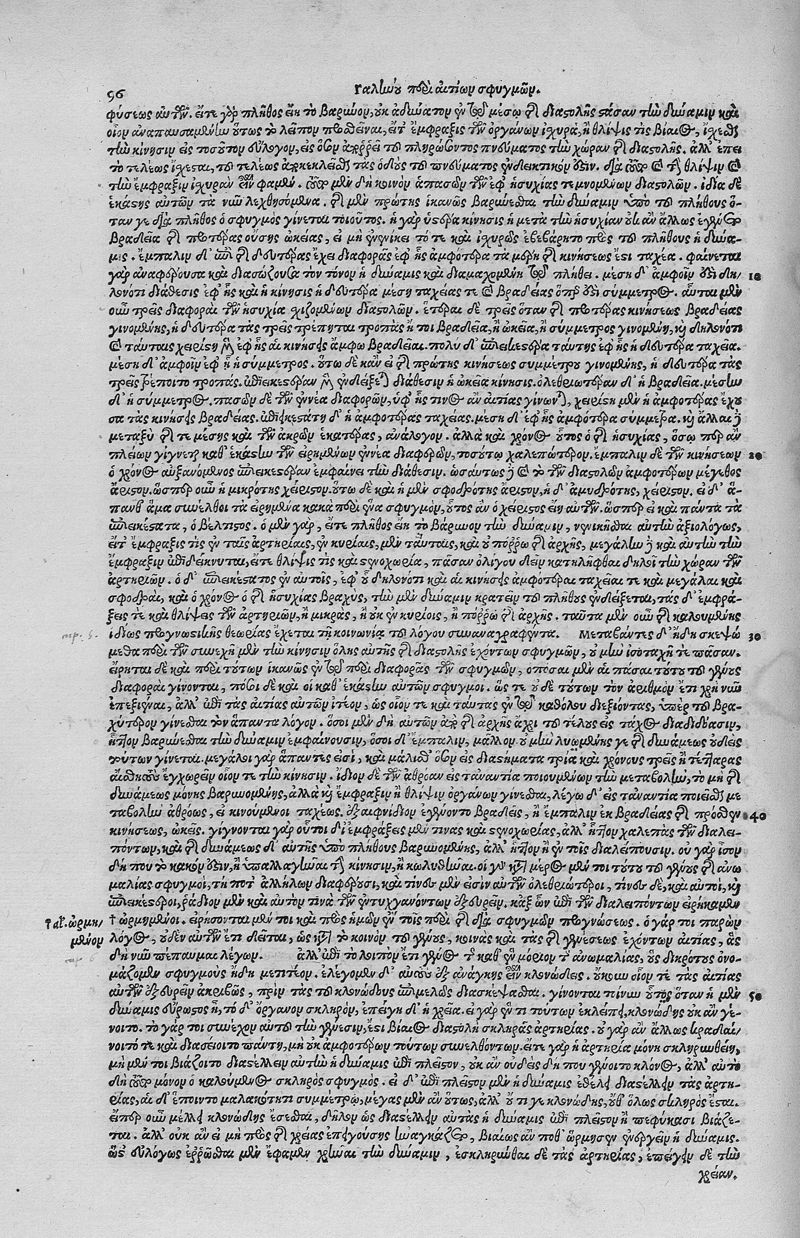 96
Γαληνοῦ περὶ αἰτίων σφυγμῶν.
φύσεως αὐτῶν. εἴτε γὰρ πλῆθος εἴη τὸ βαρύνον, οὐκ ἀδύνατον ἐν τῷ μέσῳ τῆς διαστολῆς πᾶσαν τὴν δύναμιν καὶ
οἷον ἀναπαυσαμένην οὕτως τὸ λεῖπον προσθεῖναι, εἴτ' ἔμφραξις τῶν ὀργάνων ἰσχυρὰ, ἢ θλίψις τις βίαιος,
τὴν κίνησιν εἰς τοσοῦτον εὔλογον, εἰς ὅσον τοῦ πληροῦντος πνεύματος τὴν χώραν τῆς διαστολῆς. ἀλλ' ἐπεὶ
τὸ τελέως τοῦ τελέως τὰς ὁδοὺς τοῦ πνεύματος ἐνδεικτικόν ἐστιν. διὰ τοῦτο καὶ τὴν θλίψιν καὶ
τὴν ἔμφραξιν ἰσχυρὰν εἶναί φαμεν. τοῦτο μὲν δὴ κοινὸν ἁπασῶν τῶν ἐφ' ἡσυχίας τεμνομένων διαστολῶν. ἴδια δὲ
ἑκάστης αὐτῶν τὰ νῦν λεχθησόμενα. τῆς μὲν πρώτης ἱκανῶς βαρύνεσθαι τὴν δύναμιν ὑπὸ τοῦ πλήθους ὅ-
ταν γε διὰ πλῆθος ὁ σφυγμὸς γίνεται τοιοῦτος. ἡ γὰρ ὑστέρα κίνησις ἡ μετὰ τὴν ἡσυχίαν οὐκ ἂν ἄλλως ἐγένετο
βραδεῖα τῆς προτέρας οὔσης ὠκείας, εἰ μὴ τότε καὶ ἰσχυρῶς ἐβεβάρητο πρὸς τοῦ πλήθους ἡ δύνα-
μις. ἔμπαλιν δ' ἐπὶ τῆς δευτέρας ἔχει διαφορᾶς ἐφ' ἧς ἀμφότερα τὰ μέρη τῆς κινήσεώς ἐστι ταχέα. φαίνεται
γὰρ ἀναφέρουσα καὶ διασώζουσα τὸν τόνον ἡ δύναμις καὶ διαμαχομένη τῷ πλήθει. μέση δ' ἀμφοῖν ἐστὶ δη- 10
λονότι διάθεσις ἐφ' ἧς καὶ ἡ κίνησις ἡ δευτέρα μέση ταχείας τε καὶ βραδείας ὅπερ ἐστὶ σύμμετρος. αὗται μὲν
οὖν τρεῖς διαφοραὶ τῶν ἡσυχίᾳ σχιζομένων διαστολῶν. ἕτεραι δὲ τρεῖς ὅταν τῆς προτέρας κινήσεως βραδείας
γινομένης, ἡ δευτέρα τὰς τρεῖς τρέπηται τροπὰς ἤτοι βραδεῖα, ἢ ὠκεῖα, ἢ σύμμετρος γινομένη, καὶ δηλονότι
καὶ ταύταις χειρίστη μὲν ἐφ' ἧς αἱ κινήσεις ἄμφω βραδεῖαι. πολὺ δ' ἐπιεικεστέρα ταύτης ἐφ' ἧς ἡ δευτέρα ταχεῖα.
μέση δ' ἀμφοῖν ἐφ' ἧς ἡ σύμμετρος. οὕτω δὲ κἂν εἰ τῆς πρώτης κινήσεως συμμέτρου γινομένης, ἡ δευτέρα τὰς
τρεῖς ῥέποιτο τροπάς. ἐπιεικεστέραν μὲν ἐνδείξεται διάθεσιν ἡ ὠκεῖα κίνησις. ὀλεθριωτέραν δ' ἡ βραδεῖα. μέσην
δ' ἡ σύμμετρος. πασῶν δὲ τῶν ἐννέα διαφορῶν, ὑφ' ἧς τινος ἂν αἰτίας γίνωνται, χειρίστη μὲν ἡ ἀμφοτέρας ἔχου-
σα τὰς κινήσεις βραδείας. ἐπιεικεστάτη δ' ἡ ἀμφοτέρας ταχείας. μέση δ' ἐφ' ἧς ἀμφότερα σύμμετρα. καὶ ἄλλαι δὲ
μεταξὺ τῆς τε μέσης καὶ τῶν ἄκρων ἑκατέρας, ἀνάλογον. ἀλλὰ καὶ χρόνος οὗτος ὁ τῆς ἡσυχίας, ὅσῳ περ ἂν
πλείων γίγνηται καθ' ἑκάστην τῶν εἰρημένων ἐννέα διαφορῶν, τοσούτῳ χαλεπώτερον. ἔμπαλιν δὲ τῶν κινήσεων 20
ὁ χρόνος αὐξανόμενος ἐπιεικεστέραν ἐμφαίνει τὴν διάθεσιν. ὡσαύτως δὲ καὶ τὸ τῶν διαστολῶν ἀμφοτέρων μέγεθος
ἄριστον. ὥσπερ οὖν ἡ μικρότης χείριστον. οὕτω δὲ καὶ ἡ μὲν σφοδρότης ἄριστον, ἡ δ' ἀμυδρότης, χείριστον. εἰ δ' ἅ-
πανθ' ἅμα συνέλθοι τὰ εἰρημένα κακὰ περὶ ἕνα σφυγμὸν, οὗτος ἂν ὁ χείριστος εἴη αὐτῶν. ὥσπερ εἰ καὶ πάντα τὰ
ἐπιεικέστατα, ὁ βέλτιστος. ὁ μὲν γὰρ, εἴτε πλῆθος εἴη τὸ βαρύνον τὴν δύναμιν, νενικῆσθαι αὐτὴν ἀξιολόγως,
εἴτ' ἔμφραξις τῆς ἐν ταῖς ἀρτηρίαις, ἐν κυρίαις, μὲν ταύταις, καὶ οὐ πόῤῥω τῆς ἀρχῆς, μεγάλην δὲ καὶ αὐτὴν τὴν
ἔμφραξιν ἐπιδείκνυται, εἴτε θλίψις τις καὶ στενοχωρία, πᾶσαν ὀλίγου δεῖν κατειλῆφθαι δηλοῖ τὴν χώραν τῶν
ἀρτηριῶν. ὁ δ' ἐπιεικέστατος ἐν αὐτοῖς, ἐφ' οὗ δηλονότι καὶ αἱ κινήσεις ἀμφότεραι ταχεῖαί τε καὶ μεγάλαι καὶ
σφοδραὶ, καὶ ὁ χρόνος ὁ τῆς ἡσυχίας βραχὺς, τὴν μὲν δύναμιν κρατεῖν τοῦ πλήθους ἐνδείξεται, τὰς δ' ἐμφρά-
ξεις τε καὶ θλίψεις τῶν ἀρτηριῶν, ἢ μικρὰς, ἢ οὐκ ἐν κυρίοις, ἢ πόῤῥω τῆς ἀρχῆς. ταῦτα μὲν οὖν τῆς καλουμένης
ἰδίως προγνωστικῆς θεωρίας ἔχεται τῇ κοινωνίᾳ τοῦ λόγου συναναγραφέντα. Μεταβάντες δ' ἤδη σκεψώ- 30
μεθα περὶ τῶν συνεχῆ μὲν τὴν κίνησιν ὅλης αὐτῆς τῆς διαστολῆς ἐχόντων σφυγμῶν, οὐ μὴν ἰσοταχῆ τε πᾶσαν.
εἴρηται δὲ καὶ περὶ τούτων ἱκανῶς ἐν τῷ περὶ διαφορᾶς τῶν σφυγμῶν, ὁπόσαι μὲν αἱ πᾶσαι τούτου τοῦ γένους
διαφοραὶ γίνονται, πόσοι δὲ καὶ οἱ καθ' ἑκάστην αὐτῶν σφυγμοί. ὥς τε οὐδὲ τούτων τὸν ἀριθμὸν ἔτι χρὴ νῦν
ἐπεξιέναι, ἀλλ' ἐπὶ τὰς αἰτίας αὐτῶν ἰτέον, ὡς οἷόν τε καὶ ταύτας ἐν τῷ καθόλου διεξιόντας, ὑπὲρ τοῦ βρα-
χύτερον γίνεσθαι τὸν ἅπαντα λόγον. ὅσοι μὲν δὴ αὐτῶν ἀπὸ τῆς ἀρχῆς ἄχρι τοῦ τέλους εἰς τάχος διαδιδόασιν,
ἧττον βαρύνεσθαι τὴν δύναμιν ἐμφαίνουσιν, ὅσοι δ' ἔμπαλιν, μᾶλλον. οὐ μὴν λυομένης γε τῆς δυνάμεως οὐδεὶς
τούτων γίνεται. μεγάλοι γὰρ ἅπαντές εἰσι, καὶ μάλισθ' ὅσον εἰς διαστήματα τρία καὶ χρόνους τρεῖς ἢ τέτταρας
αἰσθητοὺς ἐγχωρεῖν οἷόν τε τὴν κίνησιν. ἴδιον δὲ τῶν ἀθρόαν εἰς τἀναντία ποιουμένων τὴν μεταβολὴν, τὸ μὴ τῆς
δυνάμεως μόνης βαρυνομένης, ἀλλὰ καὶ ἔμφραξιν ἢ θλίψιν ὀργάνων γίνεσθαι, λέγω δ' εἰς τἀναντία ποιεῖσθαι με-
ταβολὴν ἀθρόως, εἰ κινούμενοι ταχέως. ἐξαιφνίδιον ἐγένοντο βραδεῖς, ἢ ἔμπαλιν ἐκ βραδείας τῆς πρόσθεν 40
κινήσεως, ὠκεῖς. γίγνονται γὰρ οὗτοι δι' ἐμφράξεις μέν τινας καὶ στενοχωρίας, ἀλλ' ἧττον χαλεπὰς τῶν διαλει-
πόντων, καὶ τῆς δυνάμεως δ' αὐτῆς ὑπὸ πλήθους βαρυνομένης, ἀλλ' ἧττον ἢ ἐν τοῖς διαλείπουσιν. οὐ γὰρ ἴσον
δή που τὸ κακόν ἐστιν, ἢ ὑπαλλαγῆναι τὴν κίνησιν, ἢ κωλυθῆναι. οἱ γοῦν κατὰ μέρος μέν τοι τούτου τοῦ γένους τῆς ἀνω-
μαλίας σφυγμοὶ, τῇ ποτ' ἀλλήλων διαφέρουσι, καὶ τίνες μέν εἰσιν αὐτῶν ὀλεθριώτεροι, τίνες δὲ, καὶ αὐτοὶ, καὶ
ἐπιεικέστεροι, ῥᾴδιον μὲν καὶ αὐτόν τινα τῶν ἐντυγχανόντων ἐξευρεῖν, κἀξ ὧν ἐπὶ τῶν διαλειπόντων εἰρήκαμεν
† αλ. ὡρμη-
μένον
† ὡρμημένοι. εἰρήσονται μέν τοι καὶ πρὸς ἡμῶν ἐν τοῖς περὶ τῆς διὰ σφυγμῶν προγνώσεως. ὁ γάρ τοι παρὼν
λόγος, οὐδὲν αὐτῶν ἔτι δεῖται, ὡς κατὰ τὸ κοινὸν τοῦ γένους, κοινὰς καὶ τὰς τῆς γενέσεως ἐχόντων αἰτίας, ἃς
δὴ νῦν πέπαυμαι λέγων. ἀλλ' ἐπὶ τὸ λοιπὸν ἔτι γένος τῆς καθ' ἓν μόριον τῆς ἀνωμαλίας, οὓς δικρότους ὀνο-
μάζομεν σφυγμοὺς ἤδη μετιτέον. ἐλέγομεν δ' αὐτοὺς ἐξ ἀνάγκης εἶναι κλονώδεις. οὔκουν οἷόν τε τὰς αἰτίας
αὐτῶν ἐξευρεῖν ἀκριβῶς, πρὶν τὰς τοῦ κλονώδους ἐπιμελῶς διασκέψασθαι. γίνονται τοίνυν οὗτοι ὅταν ἡ μὲν 50
δύναμις εὔρωστος ᾖ, τὸ δ' ὄργανον σκληρὸν, ἐπείγῃ δ' ἡ χρεία. εἰ γὰρ ἕν τι τούτων ἐκλείπῃ, κλονώδης οὐκ ἂν γέ-
νοιτο. τὸ γάρ τοι συνέχον αὐτοῦ τὴν γένεσιν, ἔστι βίαιος διαστολὴ σκληρᾶς ἀρτηρίας. οὐ γὰρ ἂν ἄλλως κραδαί-
νοιτό τε καὶ διασείοιτο πάντῃ, μὴ οὐκ ἀμφοτέρων τούτων συνελθόντων. εἴτε γὰρ ἡ ἀρτηρία μόνη σκληρωθείη,
μὴ μέν τοι βιάζοιτο διαστέλλειν αὐτὴν ἡ δύναμις ἐπὶ πλεῖστον, οὐκ ἂν οὐδεὶς δή που γένοιτο κλόνος, ἀλλ' αὐτὸ
δὴ τοῦτο μόνον ὁ καλούμενος σκληρὸς σφυγμός. εἰ δ' ἐπὶ πλεῖστον μὲν ἡ δύναμις ἐθέλῃ διαστέλλειν τὰς ἀρτη-
ρίας, αἱ δ' ἕποιντο μαλακότητι συμμέτρῳ, μέγας μὲν ἂν οὕτως, ἀλλ' οὔ τι γε κλονώδης, οὔθ' ὅλως σκληρὸς ἔσται.
εἴπερ οὖν μέλλῃ κλονώδης ἔσεσθαι, δῆλον ὡς διαστέλλειν αὐτὰς ἡ δύναμις ἐπὶ πλεῖστον ἢ πεφύκασι βιάζε-
ται. ἀλλ' οὐκ ἂν εἰ μὴ πρὸς τῆς χρείας ἐπειγούσης ἠναγκάζετο, βιαίως ἄν ποθ' ὥρμησεν ἐνεργεῖν ἡ δύναμις.
ὥστ' εὐλόγως ἐῤῥῶσθαι μὲν ἔφαμεν χρῆναι τὴν δύναμιν, ἐσκληρῦσθαι δὲ τὰς ἀρτηρίας, ἐπείγειν δὲ τὴν
χρείαν.